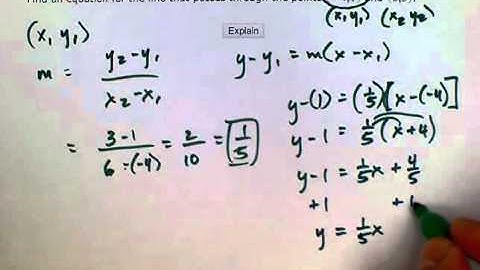 Find an equation for the line that passes through the points
(x₁ y₁) (x₂ y₂)
(x₁ y₁)
Explain
m = y₂-y₁ / x₂-x₁
= 3-1 / 6-(-4) = 2/10 = 1/5
y-y₁ = m(x-x₁)
y-(1) = (1/5)[x-(-4)]
y-1 = 1/5(x+4)
y-1 = 1/5x + 4/5
+1 +1
y = 1/5x